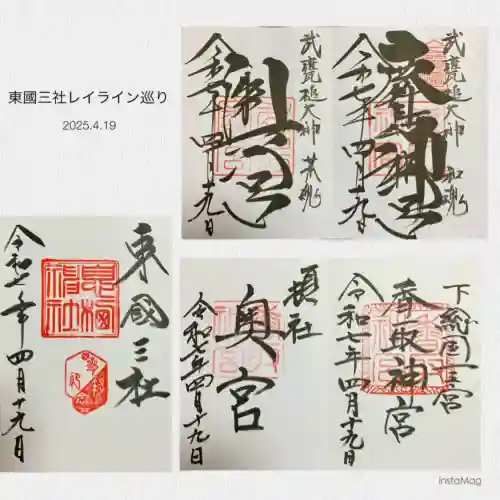 東國三社レイライン巡り
2025.4.19
武甕槌大神 和魂
鹿島神宮
令和七年四月十九日
武甕槌大神 荒魂
令和七年四月十九日
東國三社
息栖神社
令和七年四月十九日
下総国一宮
香取神宮
令和七年四月十九日
摂社
奥宮
令和七年四月十九日
InstaMag